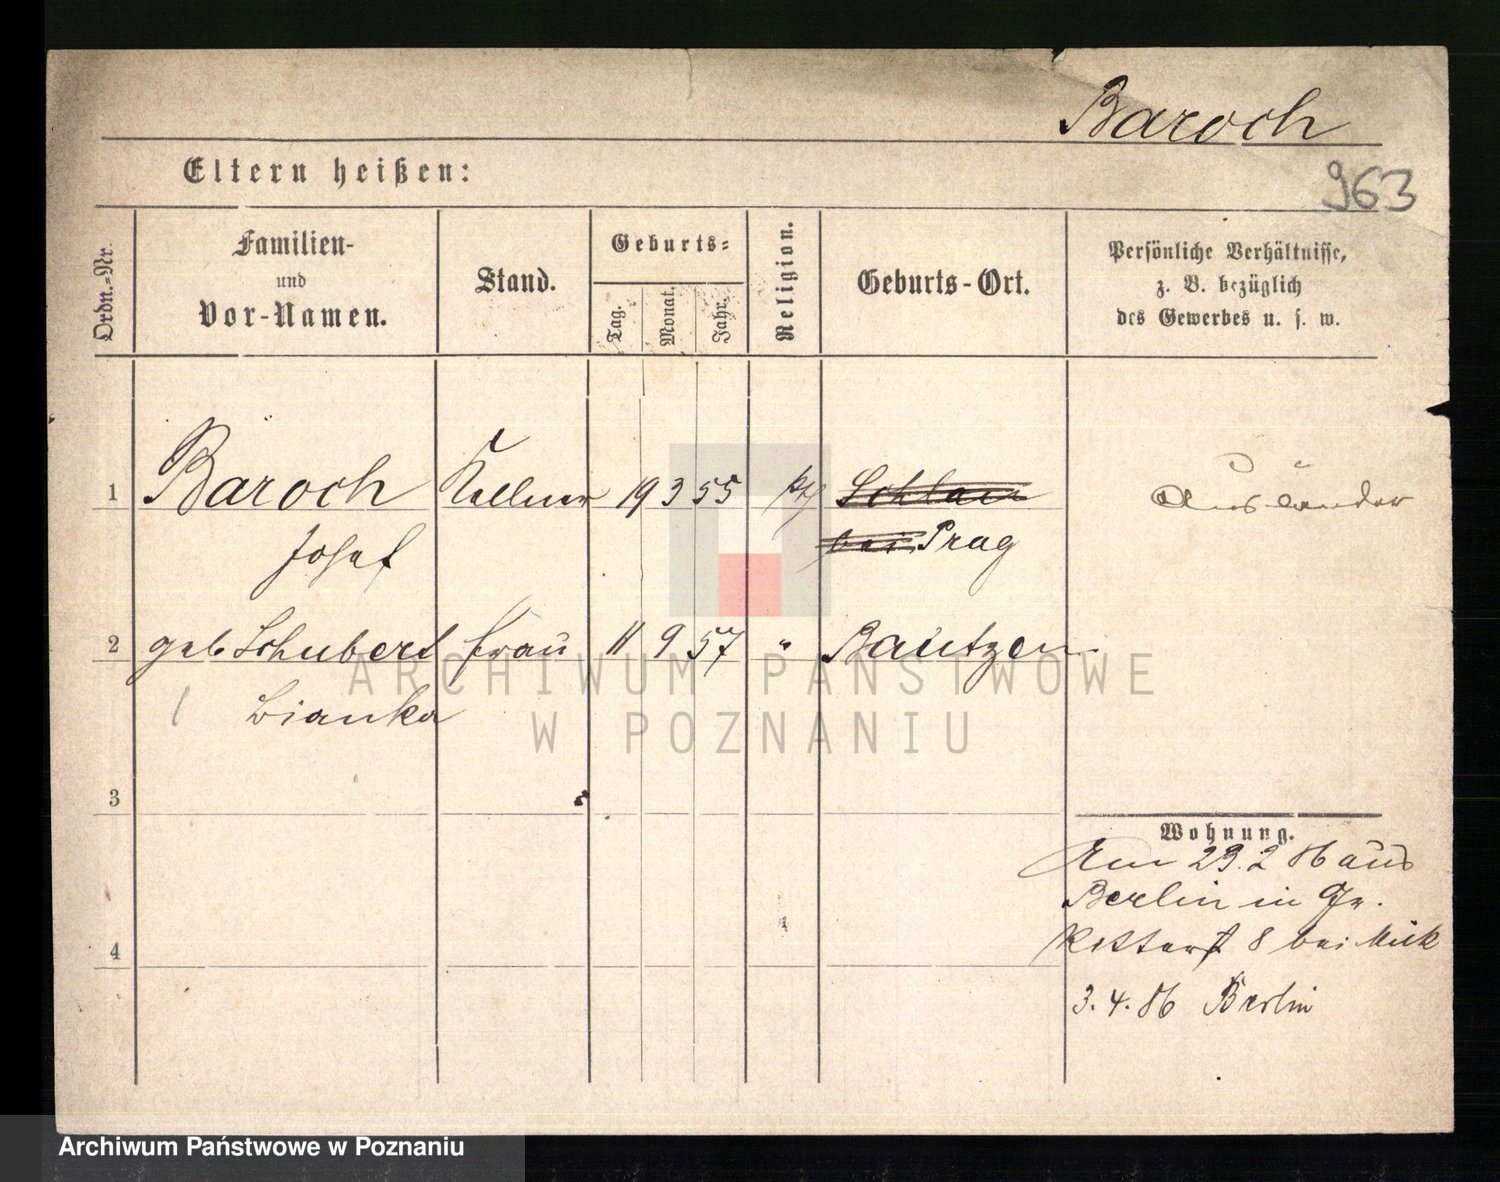 Baroch
Eltern heißen:
963
Ordn.-Nr.
Familien-
und
Vor-Namen.
Stand.
Geburts-
Tag.
Monat.
Jahr.
Religion.
Geburts-Ort.
Persönliche Verhältnisse,
z. B. bezüglich
des Gewerbes u. s. w.
1 Baroch Kellner 19 3 55 Schlan Ausländer
Josef bei Prag
2 geb Schubert Frau 11 9 57 " Bautzen
Bianka
ARCHIWUM PAŃSTWOWE
W POZNANIU
3
Wohnung.
Am 29.2 86 aus
Berlin in Gr.
Ritterst 8 bei
4
3.4.86 Berlin
Archiwum Państwowe w Poznaniu